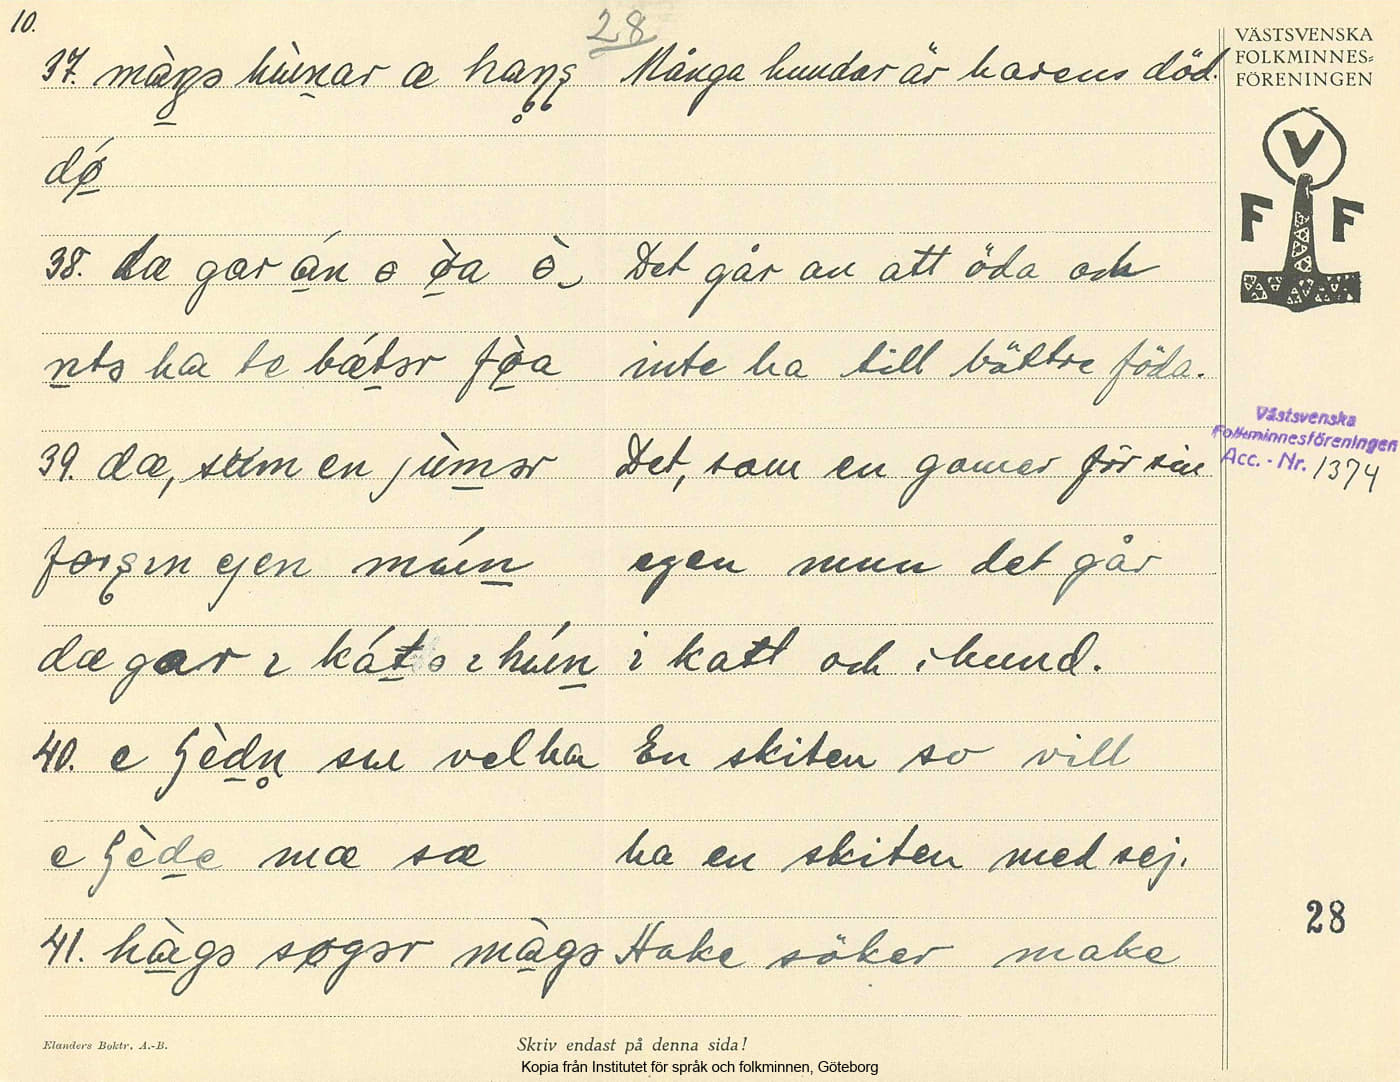 10.
28
VÄSTSVENSKA
FOLKMINNES=
FÖRENINGEN
37. Många hundar är harens död.
dǿ
V
F F
38. dæ gar án ə ø̀a ò Det går an att öda och
ha te bǽtər fø̀a inte ha till bättre föda.
39. dæ, sum en jùmər Det, som en gomer för sin
ejen múın egen mun det går
dæ gar ı kát ə ı húın i katt och i hund.
40. e sɯ vel ha En skiten so vill
e mæ sæ ha en skiten med sej.
41. hàgə søgər màgə Hake söker make
Västsvenska
Folkminnesföreningen
Acc. - Nr. 1374
28
Elanders Boktr. A.-B.
Skriv endast på denna sida!
Kopia från Institutet för språk och folkminnen, Göteborg